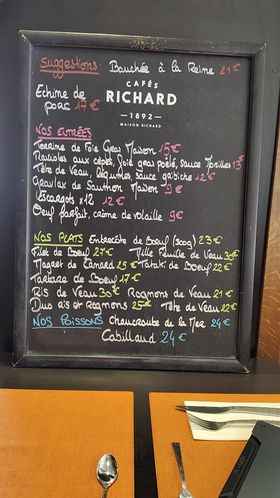 Suggestions Bouchée à la Reine 21 €
CAFÉS
Echine de
RICHARD
porc 17 €
1892
MAISON RICHARD
NOS ENTRÉES
Terrine de Foie Gras Maison 15 €
Ravioles aux cèpes, foie gras poêlé, sauce Morilles 13 €
Tête de Veau, légumes sauce gribiche 12 €
Gravlax de Saumon Maison 9 €
Escargots x12 12 €
Oeuf parfait, crème de volaille 9 €
NOS PLATS Entrecôte de Boeuf (300g) 23 €
Filet de Boeuf 27 € Mille Feuille de Veau 30 €
Magret de Canard 25 € Tataki de Boeuf 22 €
Tartare de Boeuf 17 €
Ris de Veau 30 € Rognons de Veau 21 €
Duo Ris et Rognons 25 € Tête de Veau 22 €
NOS POISSONS Choucroute de la Mer 24 €
Cabillaud 24 €